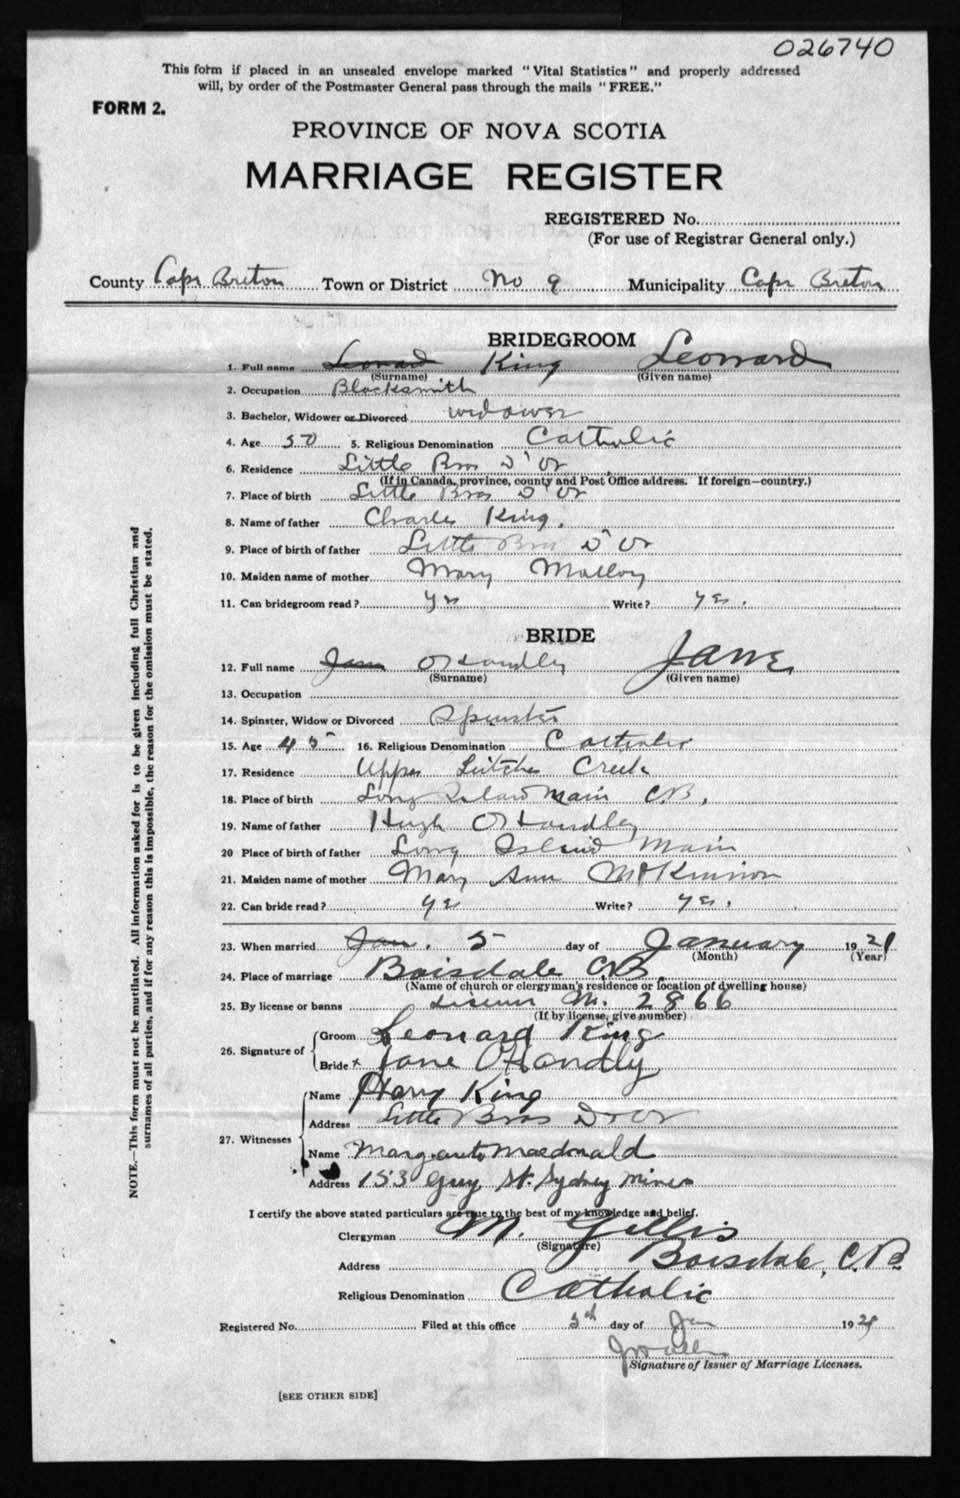 026740
This form if placed in an unsealed envelope marked "Vital Statistics" and properly addressed
will, by order of the Postmaster General pass through the mails "FREE."
FORM 2.
PROVINCE OF NOVA SCOTIA
MARRIAGE REGISTER
REGISTERED No.
(For use of Registrar General only.)
County Cape Breton Town or District No 9 Municipality Cape Breton
BRIDEGROOM
1. Full name King Leonard
(Surname) (Given name)
2. Occupation Blacksmith
3. Bachelor, Widower or Divorced widower
4. Age 50 5. Religious Denomination Catholic
6. Residence Little Bras D'Or
(If in Canada, province, county and Post Office address. If foreign—country.)
7. Place of birth Little Bras D'Or
8. Name of father Charles King.
9. Place of birth of father Little Bras D'Or
10. Maiden name of mother Mary Malloy
11. Can bridegroom read? yes Write? yes.
BRIDE
12. Full name Jane O'Handley Jane
(Surname) (Given name)
13. Occupation
14. Spinster, Widow or Divorced Spinster
15. Age 45 16. Religious Denomination Catholic
17. Residence Upper Leitches Creek
18. Place of birth Long Island Main C.B.
19. Name of father Hugh O'Handley
20 Place of birth of father Long Island Main
21. Maiden name of mother Mary Ann McKinnon
22. Can bride read? yes Write? yes.
23. When married Jan. 5 day of January 1921
(Month) (Year)
24. Place of marriage Boisdale C.B.
(Name of church or clergyman's residence or location of dwelling house)
25. By license or banns License No. 2866
(If by license, give number)
26. Signature of Groom Leonard King
Bride x Jane O'Handly
27. Witnesses Name Harry King
Address Little Bras D'Or
Name Margaret Macdonald
Address 153 Guy St. Sydney Mines
I certify the above stated particulars are true to the best of my knowledge and belief.
Clergyman M. Gillis
(Signature)
Address Boisdale, C.B.
Religious Denomination Catholic
Registered No. Filed at this office 5th day of Jan 1921
Signature of Issuer of Marriage Licenses.
[SEE OTHER SIDE]
NOTE.—This form must not be mutilated. All information asked for is to be given including full Christian and
surnames of all parties, and if for any reason this is impossible, the reason for the omission must be stated.